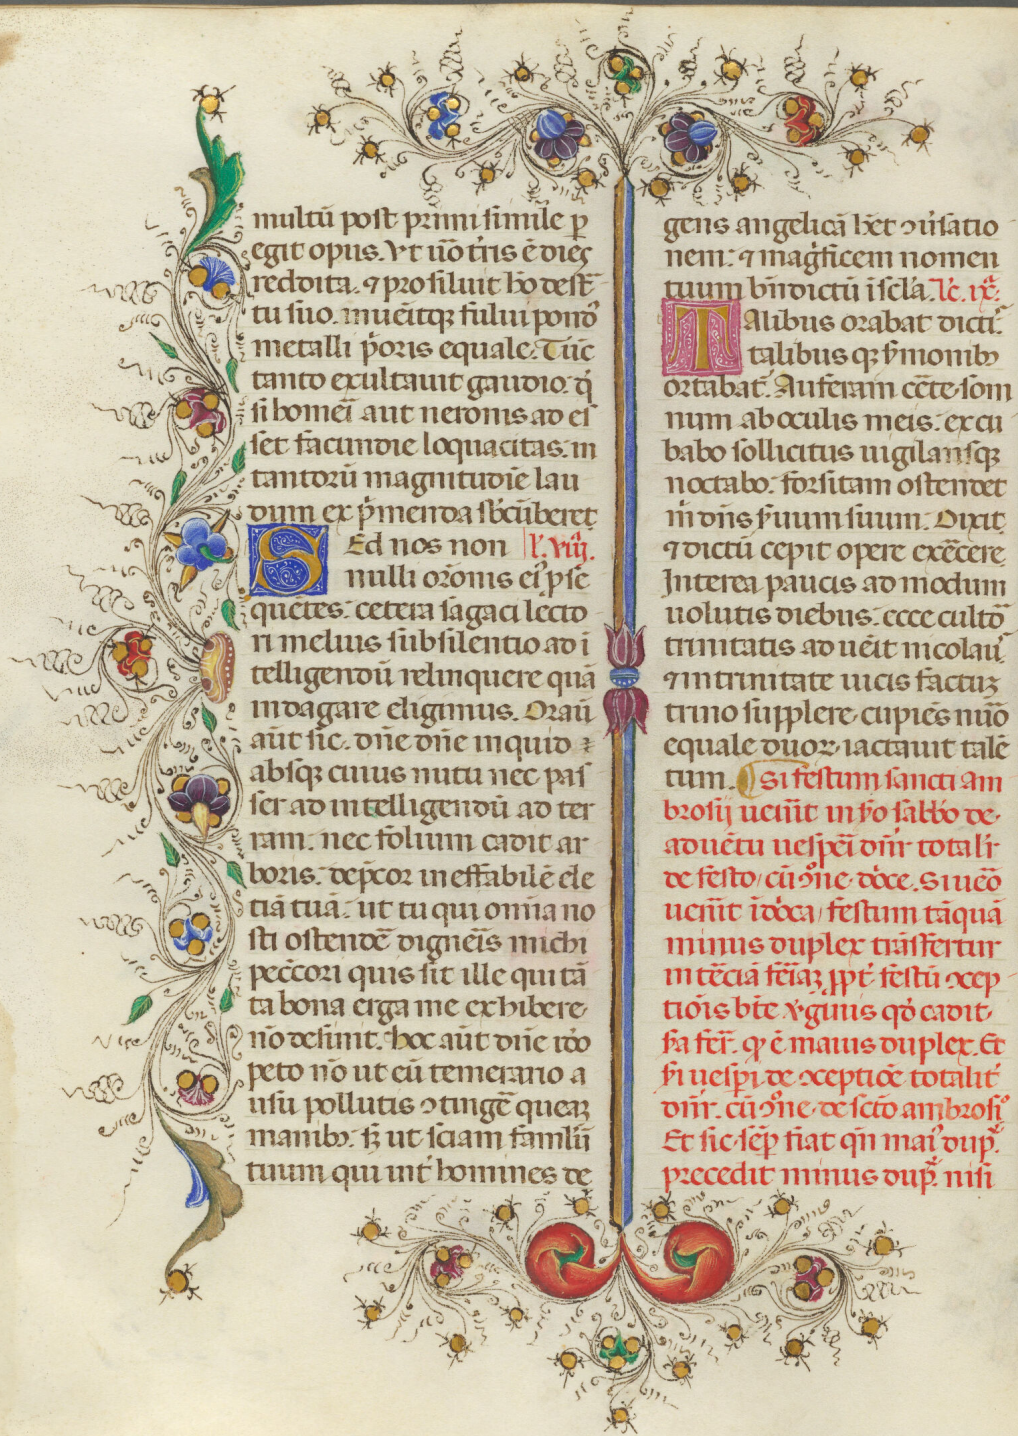 multū post primi simile p
egit opus. Vt ūo tr̄is ē dieȝ
reddita. ⁊ prosiluit hō de st̄
tu suo. inuēitqȝ fului pondꝰ
metalli p̄oris equale. Tūc
tanto exultauit gaudio. q̄
si homeri aut neronis ad eſ
set facundie loquacitas. in
tantorū magnitudīe lau
dum exp̄menda sb̄cūberet
Ed nos non l. viij.
nulli or̄onis eiꝰ p̄se
quētes. cetera sagaci lecto
ri melius sub silentio ad ī
telligendū relinquere quā
indagare eligimus. Oraū
aūt sic. dn̄e dn̄e inquid
absqȝ cuius nutu nec pas
ser ad intelligendū ad ter
ram. nec folium cadit ar
boris. dep̄cor ineffabilē cle
tiā tuā. ut tu qui omīa no
sti ostendē digneīs michi
pec̄cori quis sit ille qui tā
ta bona erga me exhibere
nō desinit. hoc aūt dn̄e id̄o
peto nō ut eū temerario a
usu pollutis ↄtingē queaȝ
manibȝ. sȝ ut sciam famlū
tuum qui int̄ homines de
gens angelicā het ↄūsatio
nem. ⁊ mag̓ficem nomen
tuum bn̄dictū ī scl̄a. lc. ix̄.
Alibus orabat dictiˢ
talibus qȝ s̓monibȝ
ortabat̄. Auferam cēte som
num ab oculis meis. excu
babo sollicitus uigilansqȝ
noctabo. forsitam ostendet
m̄ dn̄s s̓uum suum. Dixit
⁊ dictū cepit opere exēcere
Interea paucis ad modum
uolutis diebus. ecce cultoꝰ
trinitatis aduēit nicolauꝰ
⁊ in trinitate uicis factuȝ
trino supplere cupiēs nūo
equale duoꝝ iactauit talē
tum. Si festum sancti am
brosij ueīnt in p̓o sabbo de
aduētu uesperi dn̄r totali
de festo, cū ↄ̄ne dōce. Si ueō
ueīnt ī dōca, festum tāquā
minus duplex trāsfertur
in tēciā fēiaȝ p̄pt̄ festū ↄcep
tiōis btē v̓ginis qd̄ cadit
s̓a fer̄. qꝛ ē maius duplex. Et
s̓i uesp̄i de ↄceptiōe totalit̄
dn̄r. cū ↄ̄ne de scto ambrosiꝰ
Et sic sēp fiat qn̄ maiꝰ dup̄.
precedit minus dup̄. nisi